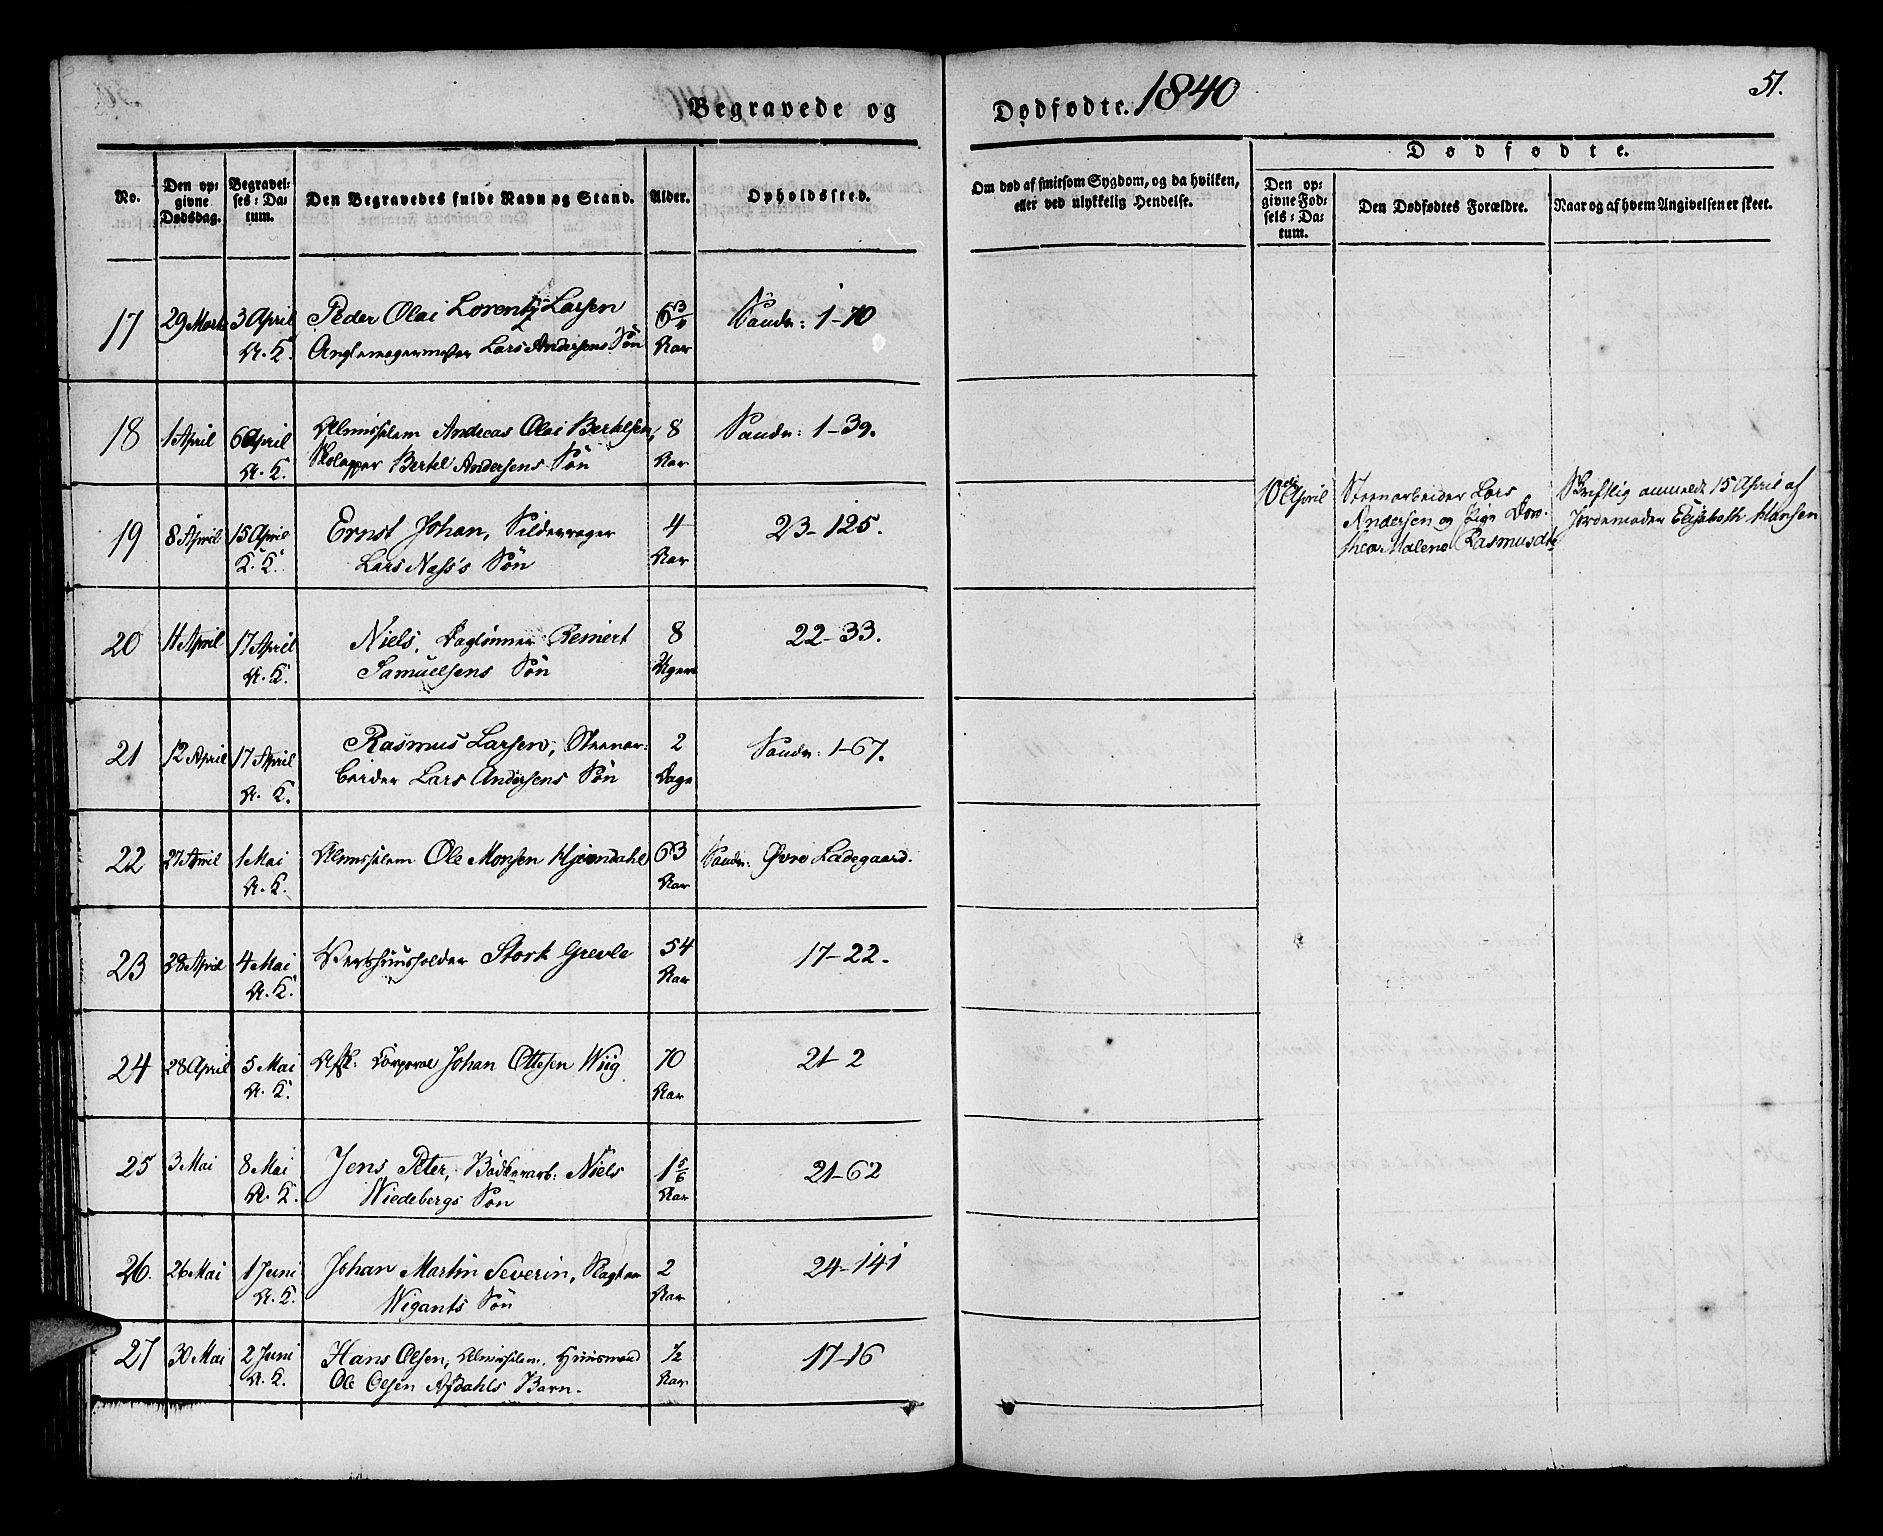 Begravede og Dødfødte. 1840
51.
No.
Den op-
givne
Dødsdag.
Begravel-
ses-Da-
tum.
Den Begravedes fulde Navn og Stand.
Alder.
Opholdssted.
Om død af smitsom Sygdom, og da hvilken,
eller ved ulykkelig Hendelse.
Dødfødte.
Den op-
givne Fød-
sels-Da-
tum.
Den Dødfødtes Forældre.
Naar og af hvem Angivelsen er skeet.
17 29 Marts 3 April Peder Olai Lorentz Larsen 6 3/4 Sandv: 1-70
A. K. Lars Andersens Søn Aar
18 1 April 6 April Almisselem Andreas Olai Bertelsen, 8 Sandv: 1-39.
A. K. Bertel Andersens Søn Aar
19 8 April 15 April Ernst Johan, 4 23-125.
K. K. Lars Næss's Søn Aar
10de April Steenarbeider Lars
Andersen og Pige Doro-
thea Malene Rasmusdtr
Skriftlig anmeldt 15 April af
Jordemoder Elisabeth Hansen
20 11 April 17 April Niels, Daglønner Reinert 8 22-33.
A. K. Samuelsens Søn Uger
21 12 April 17 April Rasmus Larsen, Steenar- 2 Sandv: 1-67.
A. K. beider Lars Andersens Søn Dage
22 27 April 1 Mai Almisselem Ole Monsen 63 Sandv: Øvre Ladegaard.
A. K. Aar
23 28 April 4 Mai Vertshuusholder Stork Grevle 54 17-22.
A. K. Aar
24 28 April 5 Mai Afsk: Corporal Johan Ottesen Wiig 70 21-2
A. K. Aar
25 3 Mai 8 Mai Jens Peter, Bødkerarb: Niels 1 5/6 21-62
A. K. Wiedebergs Søn Aar
26. 26 Mai 1 Juni Johan Martin Severin, Slagter 2 24-141
A. K. Wigants Søn Aar
27 30 Mai 2 Juni Hans Olsen, Almisselem, Huusmand 1/2 17-16
A. K. Ole Olsen Afdahls Barn. Aar